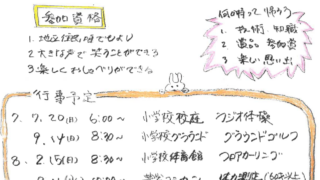 参加資格
1. 地区住民 誰でもよい
2. 大きな声で 笑うことができる
3. 楽しく おしゃべりができる
何か持って帰ろう
1. 技術、知識
2. 賞品 参加賞
3. 楽しい思い出
行事予定
7. 7. 20(日) 6:00～ 小学校校庭 ラジオ体操
9. 14(日) 8:30～ 小学校グラウンド グラウンドゴルフ
8. 2. 15(日) 8:30～ 小学校体育館 フロアカーリング